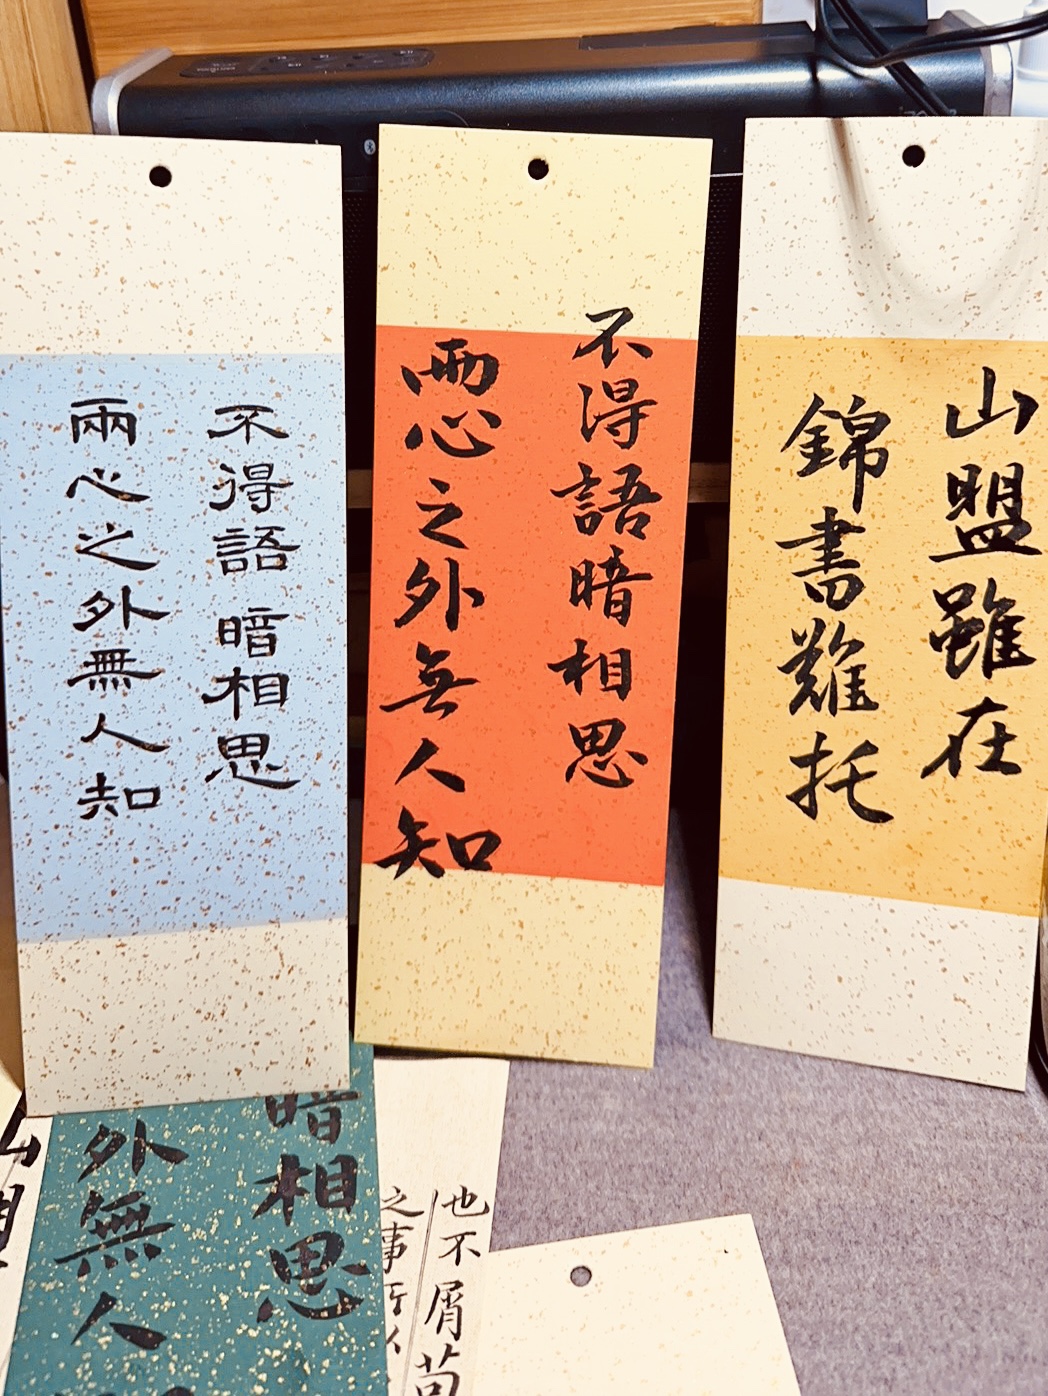 不得語暗相思
兩心之外無人知
不得語暗相思
兩心之外無人知
山盟雖在
錦書難托
暗相思
外無人
也不屑苟
之事所以
山盟